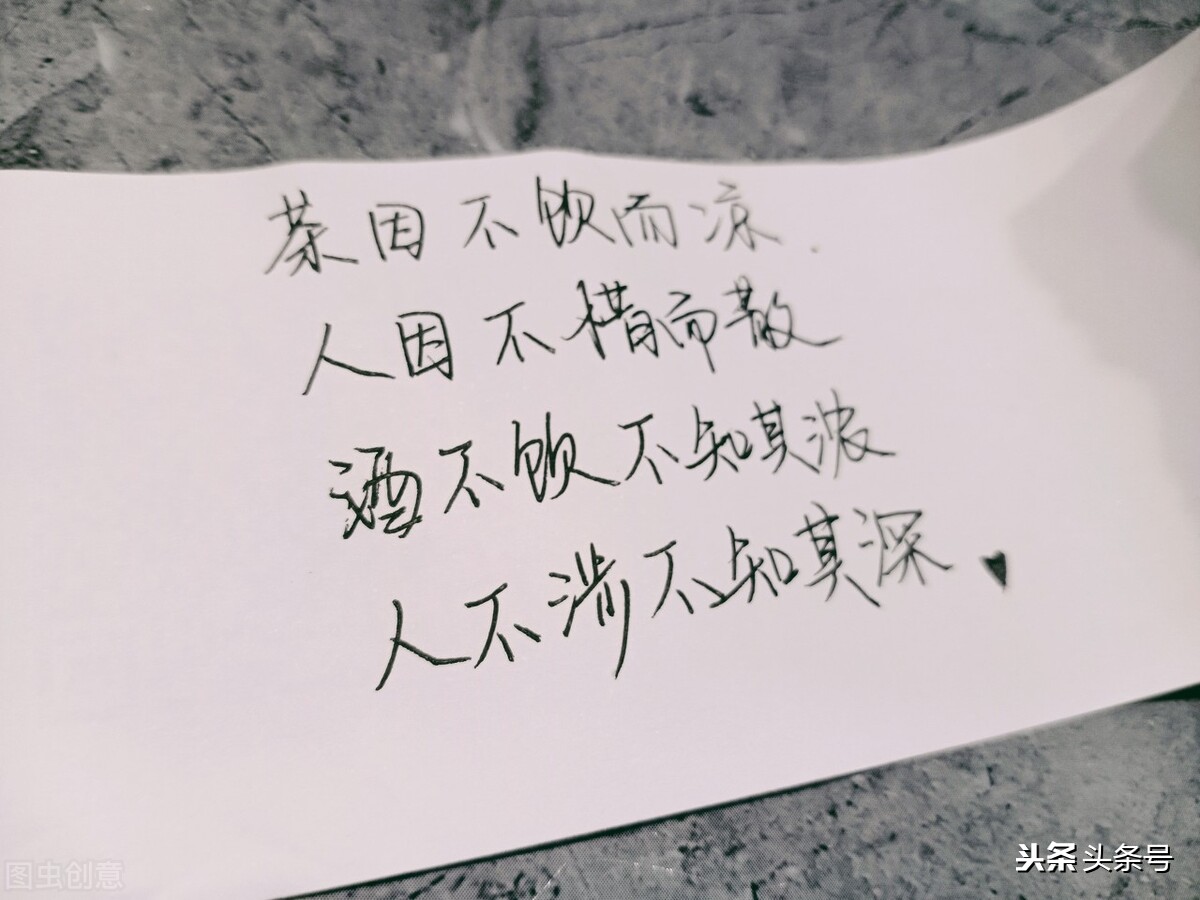 茶因不饮而凉.
人因不惜而散
酒不饮不知其浓
人不涉不知其深
图虫创意
头条 头条号